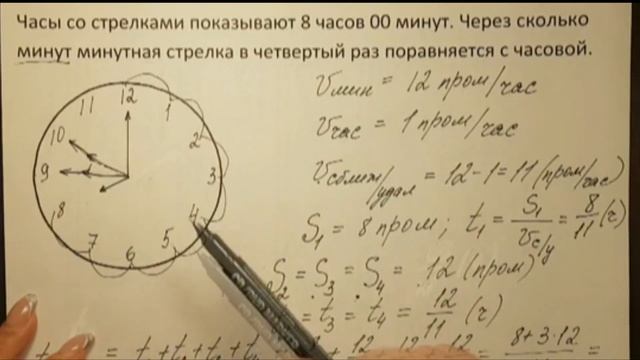 Часы со стрелками показывают 8 часов 00 минут. Через сколько
минут минутная стрелка в четвертый раз поравняется с часовой.
12
11
1
10
2
9
3
8
4
7
5
6
Vмин = 12 пром/час
Vчас = 1 пром/час
Vсближ/удал = 12-1=11 (пром/час)
S1 = 8 пром; t1 = S1/Vс/у = 8/11 (ч)
S2 = S3 = S4 = 12 (пром)
= t3 = t4 = 12/11 (ч)
8+3·12